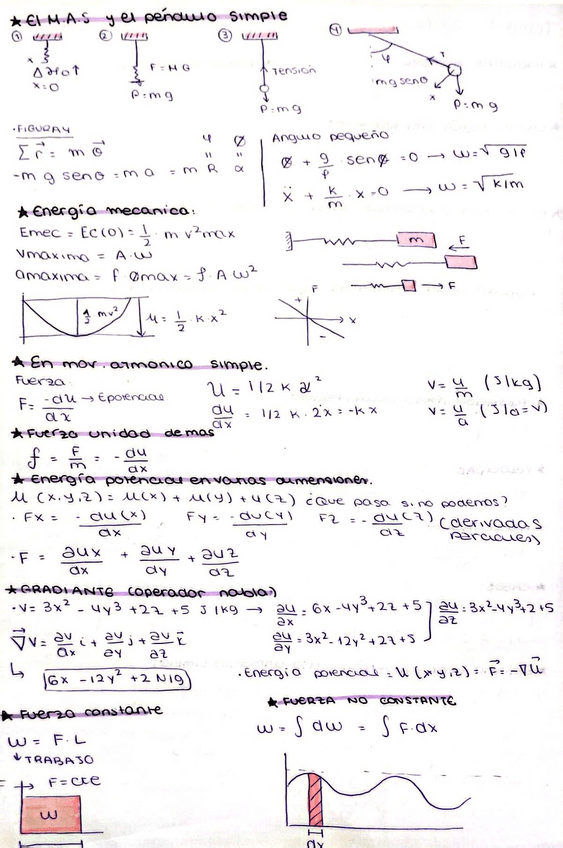 ★ El M.A.S y el péndulo simple
① ② ③ ④
x
Δx0↑
x=0
F=MG
P=mg
Tensión
P=mg
φ
T
mg senθ
x
P=mg
·FIGURA 4
Σ F = m θ
φ ∅
" "
-m g senθ = m a = m R α
Angulo pequeño
∅ + g/l · sen∅ = 0 → ω=√g/l
ẍ + k/m · x=0 → ω=√k/m
★ Energía mecanica:
Emec = Ec(0) = 1/2 · m v²max
Vmaxima = A·ω
amaxima = f ∅max = f·A ω²
m
F
F
1/2 mv²
U = 1/2 · k·x²
F
+
x
-
★ En mov. armonico simple.
Fuerza
F = -du/dx → Epotencial
U = 1/2 k x²
du/dx = 1/2 k · 2x = -kx
V = u/m (J/kg)
V = u/q (J/q=V)
★ Fuerza unidad de mas
f = F/m = - du/dx
★ Energía potencial en varias dimensiones.
U (x,y,z) = U(x) + U(y) + U(z) ¿que pasa si no podemos?
· Fx = - du(x)/dx Fy = - du(y)/dy Fz = - du(z)/dz (derivadas parciales)
·F = ∂ux/dx + ∂uy/dy + ∂uz/dz
★ GRADIANTE (operador nabla)
·V= 3x² - 4y³ + 2z + 5 J/kg → ∂u/∂x = 6x - 4y³ + 2z + 5 ∂u/∂z = 3x² - 4y³ + 2 + 5
∂u/∂y = 3x² - 12y² + 2z + 5
∇V = ∂v/∂x i + ∂v/∂y j + ∂v/∂z k
↳ 6x - 12y² + 2 N/g
·Energía potencial = U (x,y,z) = F = -∇U
★ Fuerza constante
W = F·L
↓ TRABAJO
F → F=cte
W
★ FUERZA NO CONSTANTE
W = ∫ dW = ∫ F·dx
dx